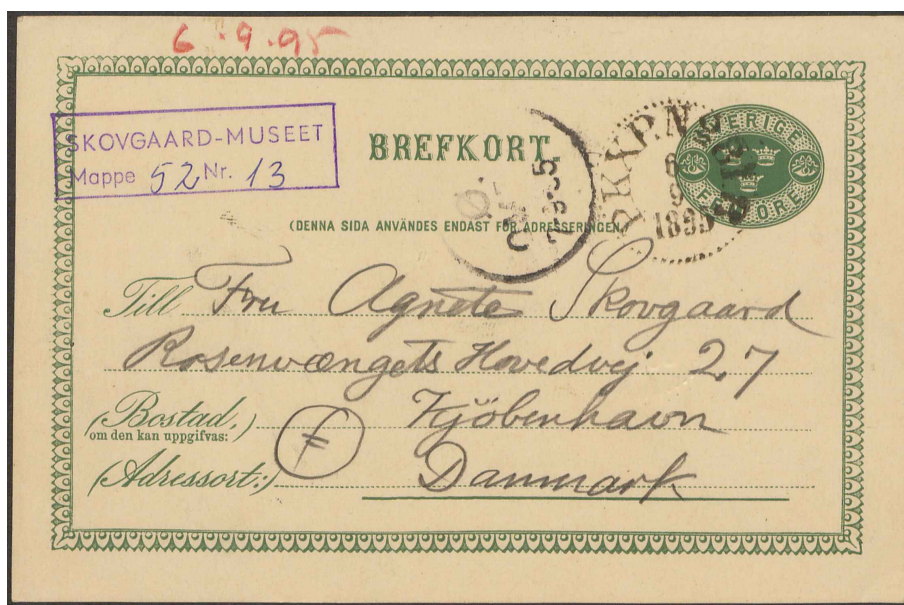 6.9.95
SKOVGAARD-MUSEET
Mappe 52 Nr. 13
BREFKORT
SVERIGE
FEM ÖRE
6
9
1895
(DENNA SIDA ANVÄNDES ENDAST FÖR ADRESSERINGEN.)
Till Fru Agnete Skovgaard
Rosenvængets Hovedvej 27
(Bostad,)
om den kan uppgifvas:
Kjöbenhavn
(Adressort:) Danmark